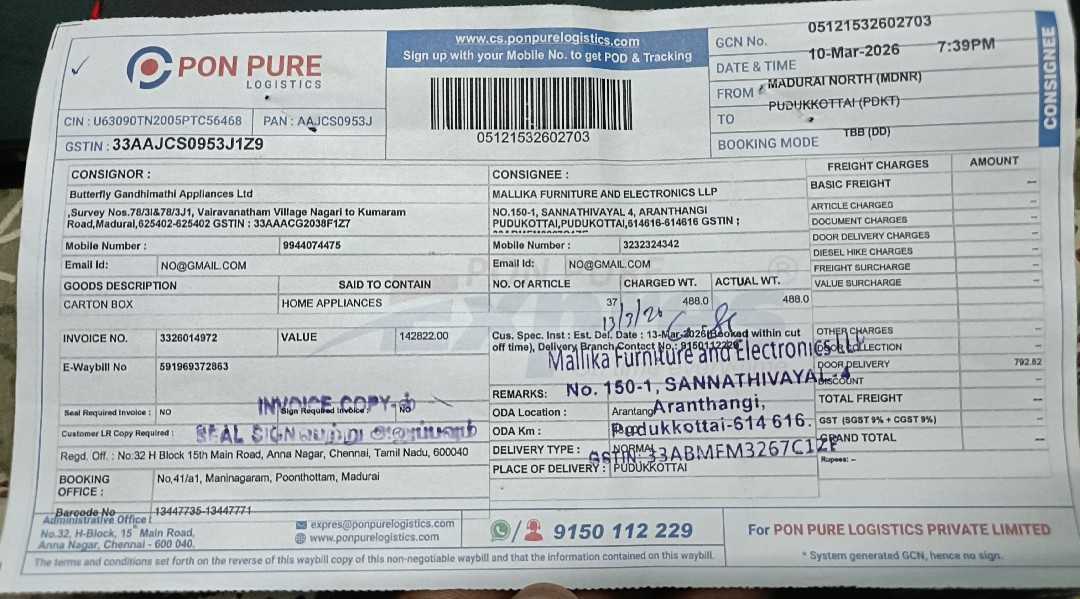 PON PURE
LOGISTICS
CIN : U63090TN2005PTC56468
PAN : AAJCS0953J
GSTIN : 33AAJCS0953J1Z9
www.cs.ponpurelogistics.com
Sign up with your Mobile No. to get POD & Tracking
05121532602703
GCN No. 05121532602703
DATE & TIME 10-Mar-2026 7:39PM
FROM MADURAI NORTH (MDNR)
TO PUDUKKOTTAI (PDKT)
BOOKING MODE TBB (DD)
CONSIGNEE
CONSIGNOR :
Butterfly Gandhimathi Appliances Ltd
,Survey Nos.78/3I&78/3J1, Vairavanatham Village Nagari to Kumaram
Road,Madurai,625402-625402 GSTIN : 33AAACG2038F1Z7
Mobile Number : 9944074475
Email Id: NO@GMAIL.COM
CONSIGNEE :
MALLIKA FURNITURE AND ELECTRONICS LLP
NO.150-1, SANNATHIVAYAL 4, ARANTHANGI
PUDUKOTTAI,PUDUKOTTAI,614616-614616 GSTIN :
Mobile Number : 3232324342
Email Id: NO@GMAIL.COM
GOODS DESCRIPTION SAID TO CONTAIN NO. OF ARTICLE CHARGED WT. ACTUAL WT.
CARTON BOX HOME APPLIANCES 37 488.0 488.0
13/3/26
INVOICE NO. 3326014972 VALUE 142822.00
E-Waybill No 591969372863
Cus. Spec. Inst : Est. Del. Date : 13-Mar-2026(Booked within cut
off time), Delivery Branch Contact No.: 9150112229
Mallika Furniture and Electronics LLP
No. 150-1, SANNATHIVAYAL -4
Aranthangi,
Pudukkottai-614 616.
GSTIN: 33ABMFM3267C1ZF
REMARKS:
ODA Location : Arantang
ODA Km :
DELIVERY TYPE : NORMAL
PLACE OF DELIVERY : PUDUKKOTTAI
Seal Required Invoice : NO
Sign Required Invoice : No
INVOICE COPY-ல்
Customer LR Copy Required :
SEAL SIGN பெற்று அனுப்பவும்
Regd. Off. : No:32 H Block 15th Main Road, Anna Nagar, Chennai, Tamil Nadu, 600040
BOOKING
OFFICE : No,41/a1, Maninagaram, Poonthottam, Madurai
Barcode No 13447735-13447771
FREIGHT CHARGES AMOUNT
BASIC FREIGHT --
ARTICLE CHARGES --
DOCUMENT CHARGES --
DOOR DELIVERY CHARGES --
DIESEL HIKE CHARGES --
FREIGHT SURCHARGE --
VALUE SURCHARGE --
OTHER CHARGES --
DOOR COLLECTION --
DOOR DELIVERY 792.82
DISCOUNT --
TOTAL FREIGHT --
GST (SGST 9% + CGST 9%) --
GRAND TOTAL --
Rupees: --
Administrative Office :
No.32, H-Block, 15th Main Road,
Anna Nagar, Chennai - 600 040.
expres@ponpurelogistics.com
www.ponpurelogistics.com
9150 112 229
For PON PURE LOGISTICS PRIVATE LIMITED
* System generated GCN, hence no sign.
The terms and conditions set forth on the reverse of this waybill copy of this non-negotiable waybill and that the information contained on this waybill.